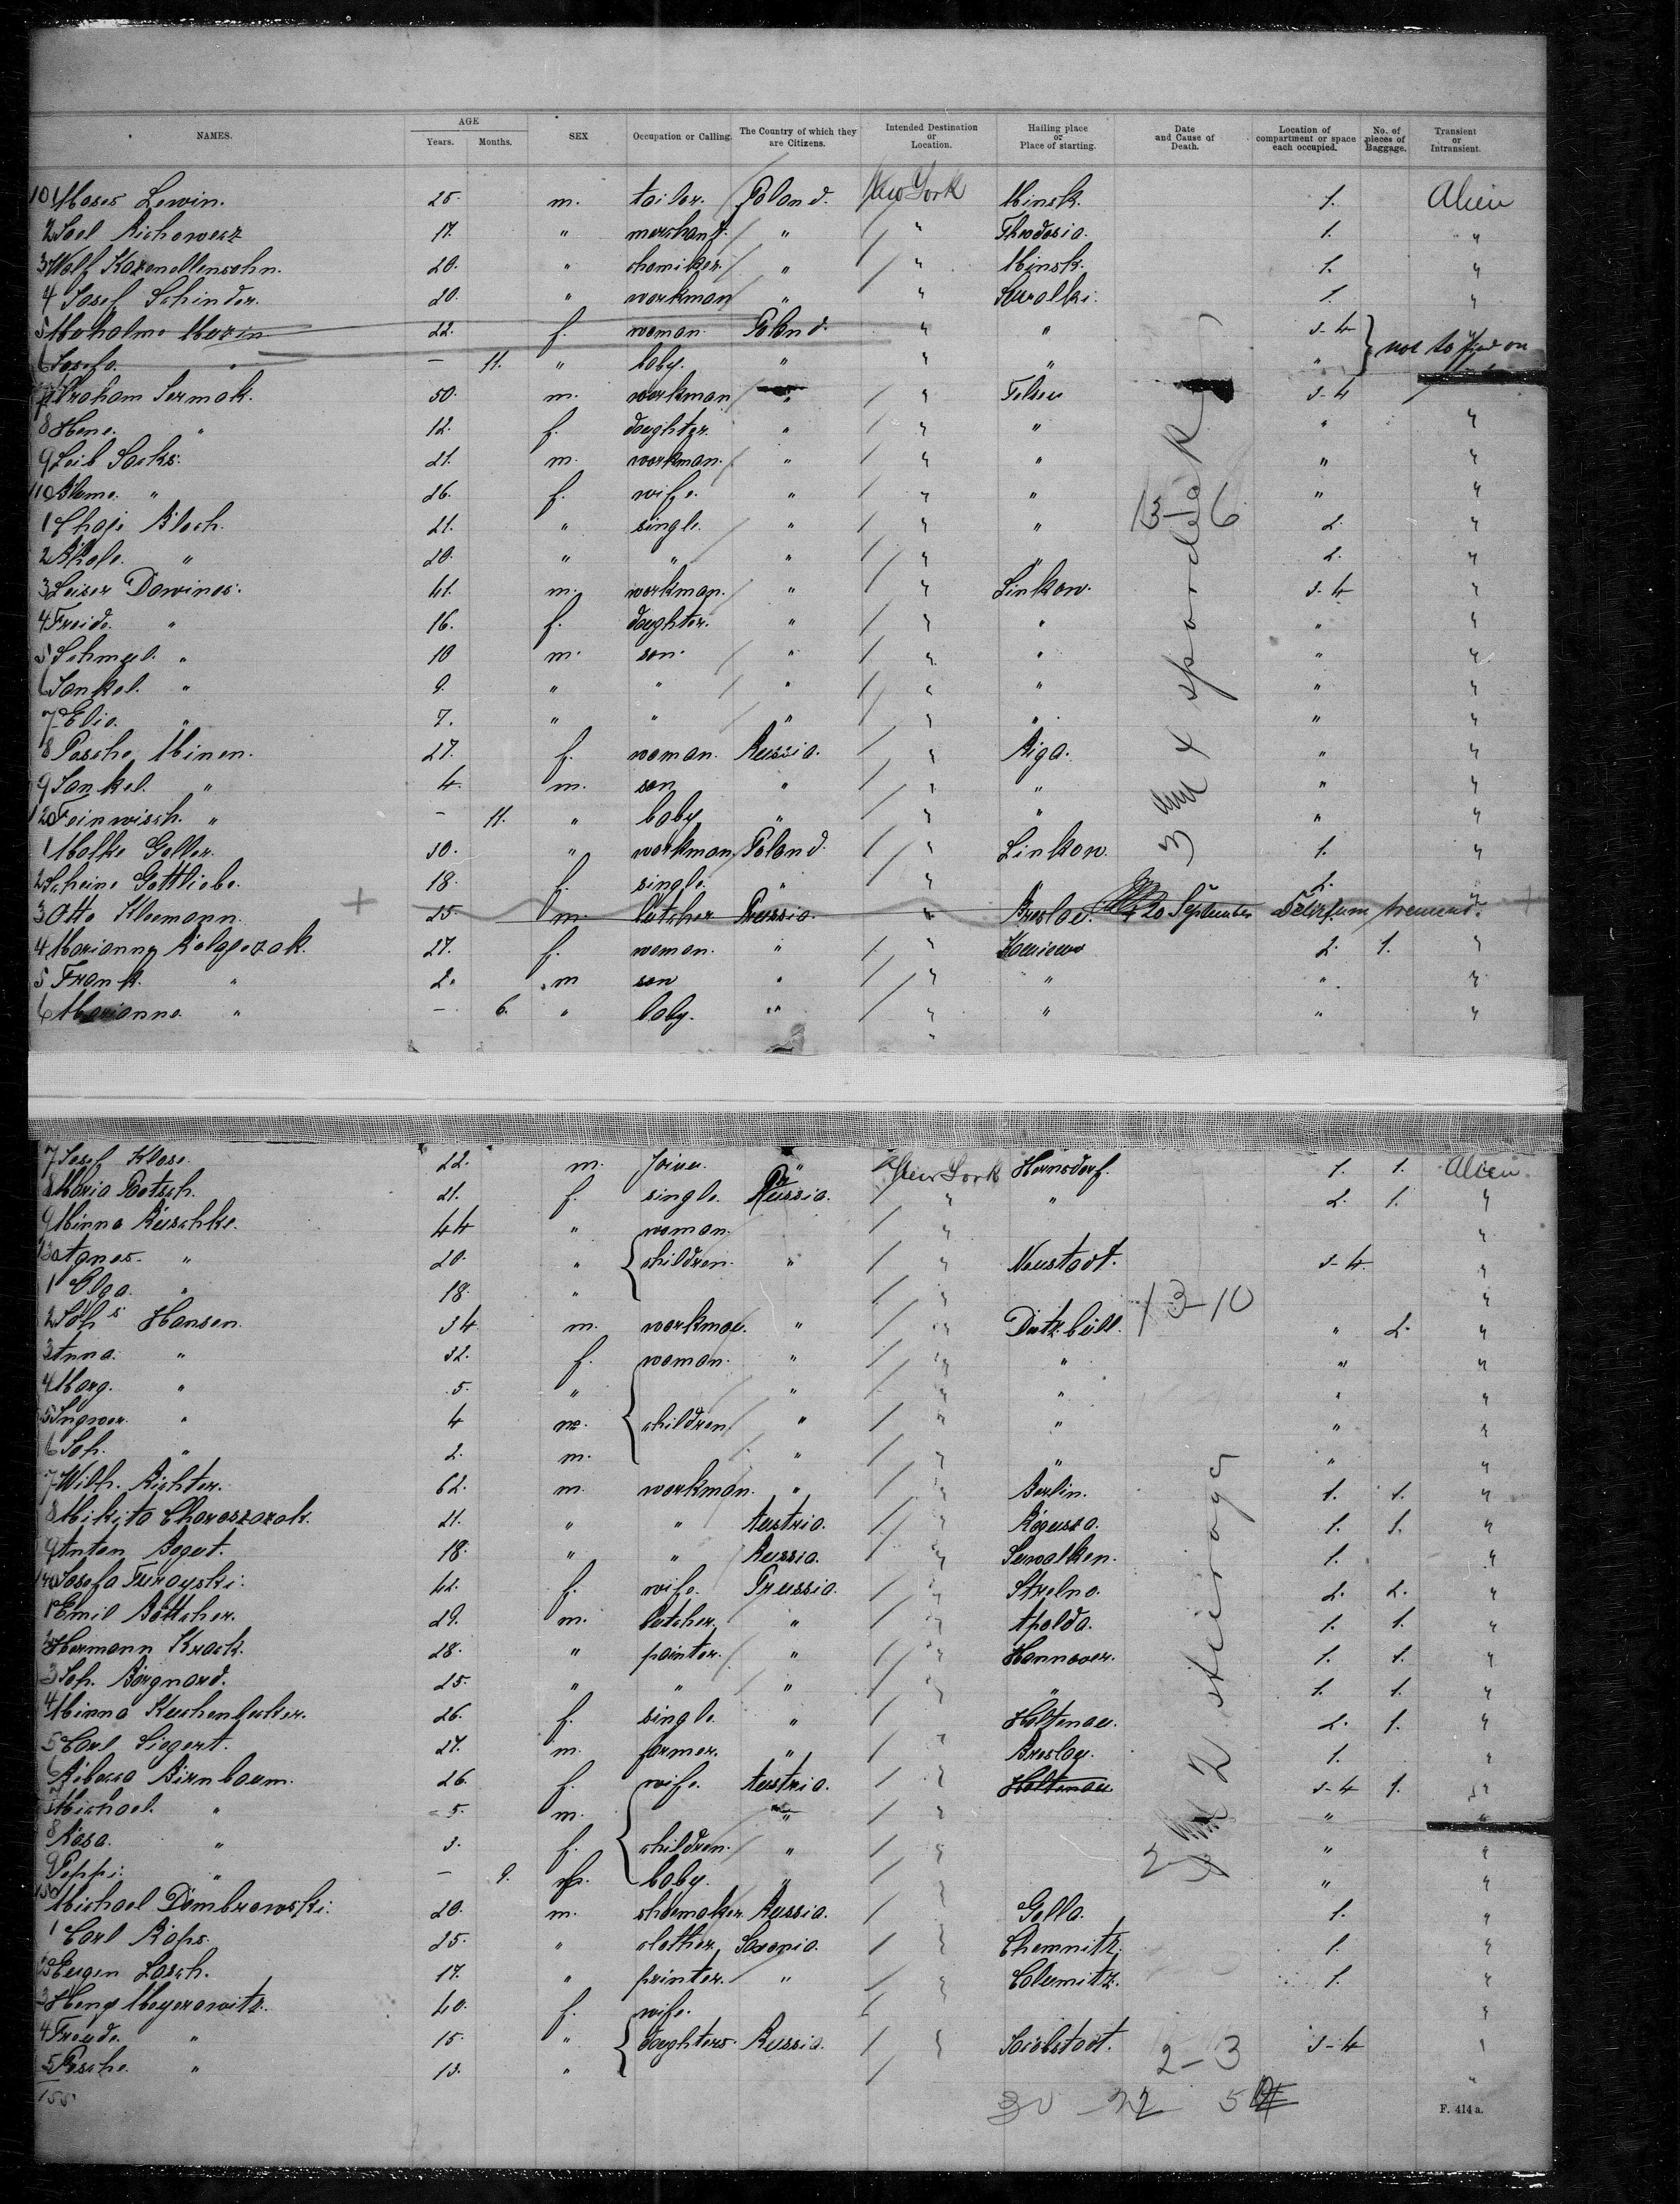 NAMES. AGE Years. Months. SEX Occupation or Calling. The Country of which they are Citizens. Intended Destination or Location. Hailing place or Place of starting. Date and Cause of Death. Location of compartment or space each occupied. No. of pieces of Baggage. Transient or Intransient.
101 Moses Lewin. 25. m. tailor. Poland. New York Minsk. 1. Alien
2 Soel Richowerz 17. " merchant. " " Theodosia. 1. "
3 Wolf Kazenellensohn. 20. " chemiker. " " Minsk. 1. "
4 Josef Schinder. 20. " workman " " Suvalki. 1. "
5 Mahalme Marin 22. f. woman. Poland. " " 3-4 } not to find on
6 Josefa. " — 11. " baby. " " " "
7 Abraham Sermak. 50. m. workman " " Felsen 3-4
8 Hene. " 12. f. doughter. " " " " "
9 Leib Sacks. 21. m. workman. " " " " "
110 Blume. " 26. f. wife. " " " " "
1 Chaje Bloch. 21. " single. " " " 13-6 2. "
2 Rhale. " 20. " " " " " 2. "
3 Leiser Dawines. 41. m. workman. " " Linkow. 3-4 "
4 Freide. " 16. f. doughter. " " " " "
5 Schmuel. " 10 m. son. " " " " "
6 Jankel. " 9. " " " " " " "
7 Elia. " 7. " " " " " " "
8 Pesche Minen. 27. f. woman. Russia. " Riga. " "
9 Jankel. " 4. m. son " " " " "
120 Feinwisch. " — 11. " baby " " " " "
1 Malke Geller. 30. " workman Poland. " Linkow. 1. "
2 Scheine Gottliebe. 18. f. single. " " " 2. "
3 Otto Kleemann. 25. m. butcher Prussia. " Breslau. 20 September Delirium tremens.
4 Marianny Rolgoczak. 27. f. woman. " " 2. 1. "
5 Frank. " 2. m son " " " " "
6 Marianna " — 6. " baby. " " " " "
7 Josef Klose. 22. m. Joiner. " New York Hernsdorf. 1. 1. Alien
8 Maria Paetsch. 21. f. single. Prussia. " " 2. 1. "
9 Minna Ruschke. 44 " woman. " "
130 Agnes. " 20. " { children. " " Neustadt. 3-4 "
1 Olga. " 18. " " "
2 Johs Hansen. 34 m. workman. " " Dutzbüll. 13-10 " 2. "
3 Anna. " 32. f. woman. " " " " "
4 Marg. " 5. " " " " " "
5 Ingwer. " 4 m. { children " " " " "
6 Joh. " 2. m. " " " " "
7 Wilh. Richter. 62. m. workman. " " Berlin. 1. 1. "
8 Mikita Charoszozak. 21. " " Austria. " Rogusza. 1. 1. "
9 Anton Bogut. 18. " " Russia. " Suwalken. 1. "
140 Josefa Turayski. 42. f. wife. Prussia. " Strelno. 2. 2. "
1 Emil Böttcher. 29. m. butcher. " " Apolda. 1. 1. "
2 Hermann Krack. 28. " painter. " " Hannover. 1. 1. "
3 Joh. Borgnard. 25. " " " " " 1. 1. "
4 Minna Kuchenbecker. 26. f. single. " Holtenau. 2. 1. "
5 Carl Siegert. 27. m. farmer. " " Breslau. 1. "
6 Ribecca Birnbaum. 26. f. wife. Austria. " Holtenau 3-4 1. "
7 Michael. " 5. m. " " " "
8 Rosa. " 3. f. { children. " " " "
9 Peppi. " — 9. baby. " " " "
150 Michael Dombrowski. 20. m. shoemaker. Russia. " Golla. 1. "
1 Carl Rops. 25. " clother. Saxonia. " Chemnitz. 1. "
2 Eugen Lasch. 17. " printer. " " Colemitz. 1. "
3 Heny Meyerowitz. 40. f. wife. "
4 Freude. " 15. " { doughters. Russia. " Jacobstadt. 3-4 "
5 Pesche. " 13. " "
155
2-3
F. 414 a.